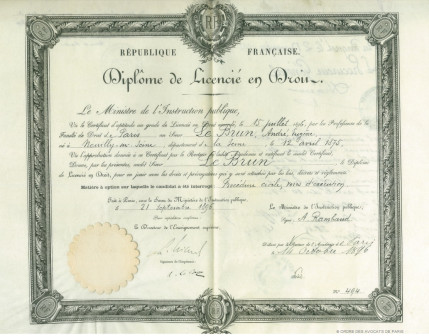 RF
RÉPUBLIQUE FRANÇAISE.
Diplôme de Licencié en Droit.
Le Ministre de l'Instruction publique,
Vu le Certificat d'aptitude au grade de Licencié en Droit accordé le 15 juillet 1896, par les Professeurs de la
Faculté de Droit de Paris au Sieur Le Brun, André
né à Neuilly sur Seine, département de la Seine le 12 avril 1875,
Vu l'approbation donnée à ce Certificat par le Recteur
Donne, par les présentes, audit Sieur Le Brun le Diplôme
de Licencié en Droit, pour en jouir avec les droits et prérogatives qui y sont attachés par les lois, décrets et règlements.
Matière à option sur laquelle le candidat a été interrogé: Procédure civile, voies d'exécution
Fait à Paris, sous le Sceau du Ministère de l'Instruction publique,
le 21 septembre 1896
Le Ministre de l'Instruction publique,
Signé: A. Rambaud
Pour expédition conforme:
Le Directeur de l'Enseignement supérieur,
Délivré par le Recteur de l'Académie de Paris
octobre 1896
Signature de l'impétrant:
No 494.
© ORDRE DES AVOCATS DE PARIS